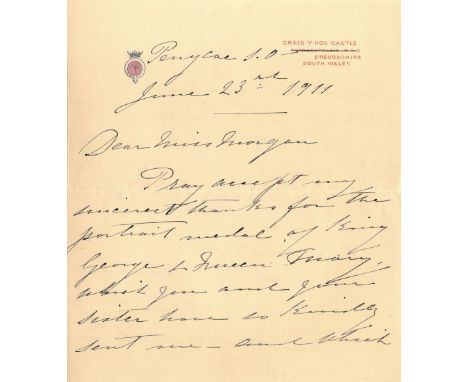 CRAIG-Y-NOS CASTLE
BRECONSHIRE
SOUTH WALES
Penycae S.O
June 23rd 1911
Dear Miss Morgan
Pray accept my
sincerest thanks for the
portrait medal of King
George & Queen Mary,
which you and your
sister have so kindly
sent me - and which